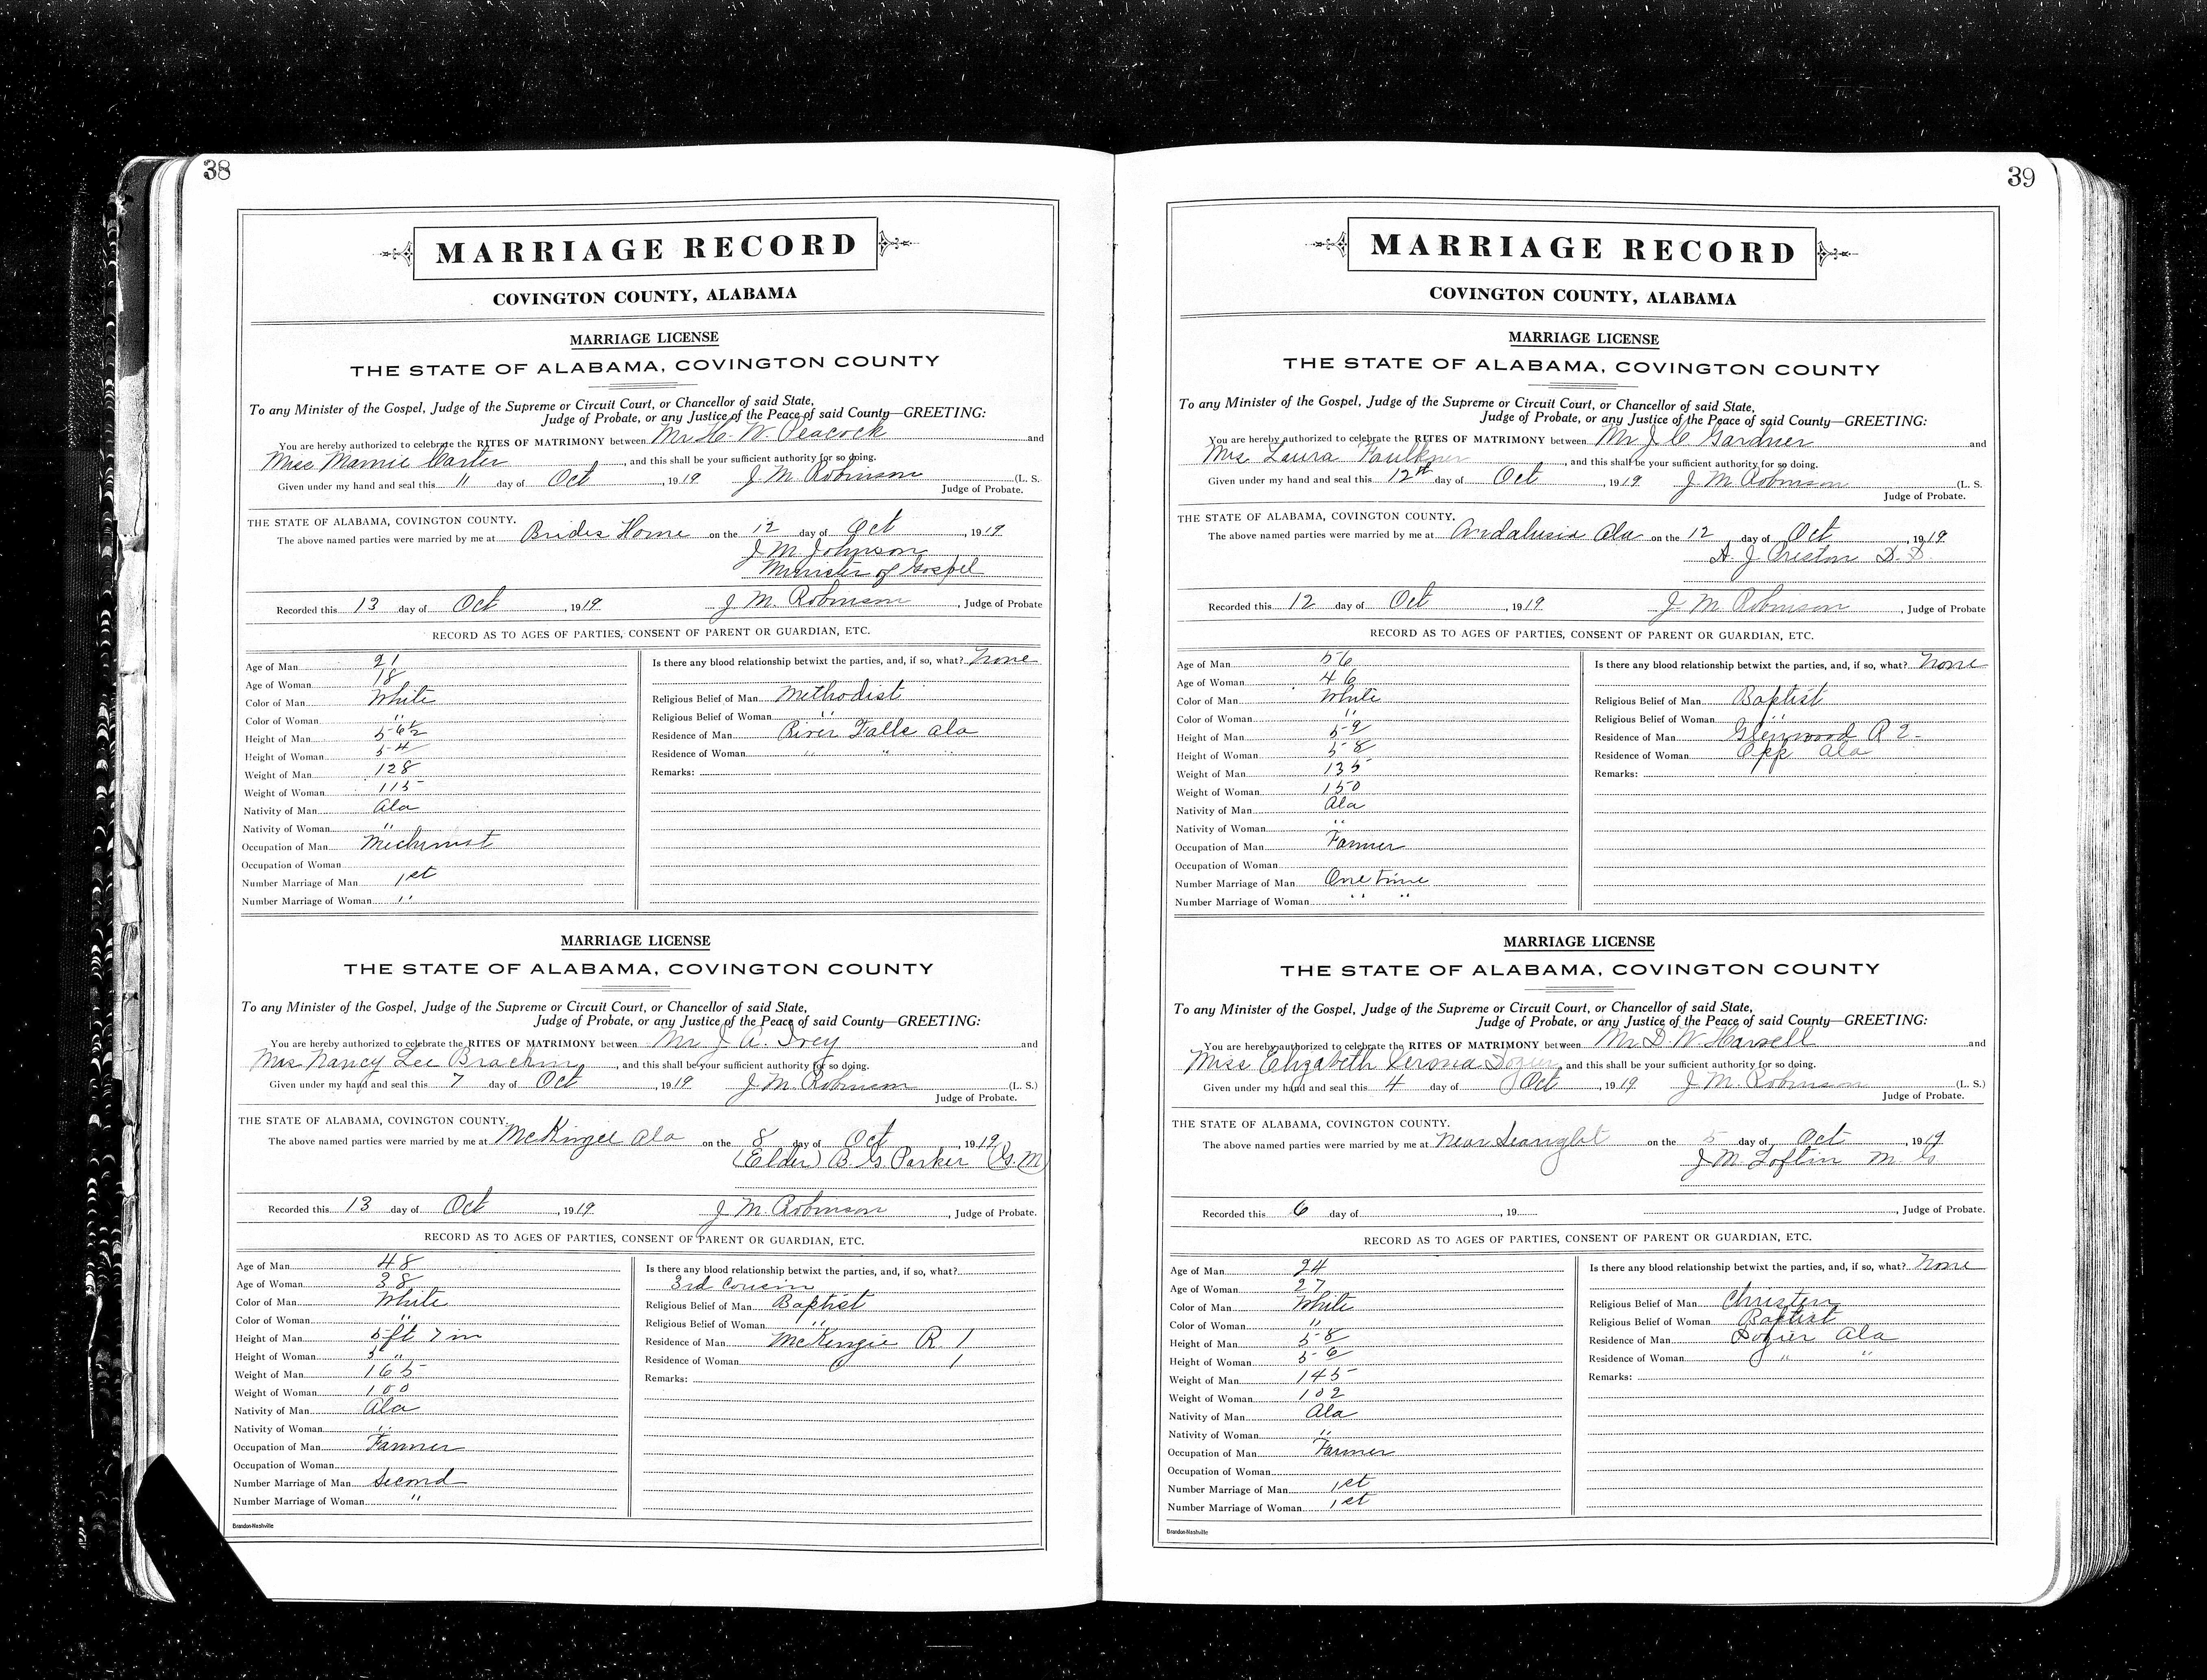 38
MARRIAGE RECORD
COVINGTON COUNTY, ALABAMA
MARRIAGE LICENSE
THE STATE OF ALABAMA, COVINGTON COUNTY
To any Minister of the Gospel, Judge of the Supreme or Circuit Court, or Chancellor of said State,
Judge of Probate, or any Justice of the Peace of said County—GREETING:
You are hereby authorized to celebrate the RITES OF MATRIMONY between Mr H. W. Peacock and
Miss Mamie Carter, and this shall be your sufficient authority for so doing.
Given under my hand and seal this 11 day of Oct, 1919 J. M. Robinson (L. S.
Judge of Probate.
THE STATE OF ALABAMA, COVINGTON COUNTY.
The above named parties were married by me at Brides Home on the 12 day of Oct, 1919
J M Johnson
Minister of Gospel
Recorded this 13 day of Oct, 1919 J. M. Robinson, Judge of Probate
RECORD AS TO AGES OF PARTIES, CONSENT OF PARENT OR GUARDIAN, ETC.
Age of Man 21
Age of Woman 18
Color of Man White
Color of Woman "
Height of Man 5-6½
Height of Woman 5-4
Weight of Man 128
Weight of Woman 115
Nativity of Man Ala
Nativity of Woman "
Occupation of Man
Occupation of Woman
Number Marriage of Man 1st
Number Marriage of Woman "
Is there any blood relationship betwixt the parties, and, if so, what? None
Religious Belief of Man Methodist
Religious Belief of Woman "
Residence of Man River Falls Ala
Residence of Woman " " "
Remarks:
MARRIAGE LICENSE
THE STATE OF ALABAMA, COVINGTON COUNTY
To any Minister of the Gospel, Judge of the Supreme or Circuit Court, or Chancellor of said State,
Judge of Probate, or any Justice of the Peace of said County—GREETING:
You are hereby authorized to celebrate the RITES OF MATRIMONY between Mr J. A. Ivey and
Mrs Nancy Lee Brackin, and this shall be your sufficient authority for so doing.
Given under my hand and seal this 7 day of Oct, 1919 J. M. Robinson (L. S.)
Judge of Probate.
THE STATE OF ALABAMA, COVINGTON COUNTY.
The above named parties were married by me at McKinzee Ala on the 8 day of Oct, 1919
(Elder) B. G. Parker (G. M)
Recorded this 13 day of Oct, 1919 J. M. Robinson, Judge of Probate.
RECORD AS TO AGES OF PARTIES, CONSENT OF PARENT OR GUARDIAN, ETC.
Age of Man 48
Age of Woman 38
Color of Man White
Color of Woman "
Height of Man 5 ft 7 in
Height of Woman 5 "
Weight of Man 165
Weight of Woman 100
Nativity of Man Ala
Nativity of Woman "
Occupation of Man Farmer
Occupation of Woman
Number Marriage of Man Second
Number Marriage of Woman "
Is there any blood relationship betwixt the parties, and, if so, what?
3rd Cousin
Religious Belief of Man Baptist
Religious Belief of Woman "
Residence of Man McKenzie R. 1
Residence of Woman " 1
Remarks:
Brandon-Nashville
39
MARRIAGE RECORD
COVINGTON COUNTY, ALABAMA
MARRIAGE LICENSE
THE STATE OF ALABAMA, COVINGTON COUNTY
To any Minister of the Gospel, Judge of the Supreme or Circuit Court, or Chancellor of said State,
Judge of Probate, or any Justice of the Peace of said County—GREETING:
You are hereby authorized to celebrate the RITES OF MATRIMONY between Mr J. C. Gardner and
Mrs Laura Faulkner, and this shall be your sufficient authority for so doing.
Given under my hand and seal this 12th day of Oct, 1919. J. M Robinson (L. S.
Judge of Probate.
THE STATE OF ALABAMA, COVINGTON COUNTY.
The above named parties were married by me at Andalusia Ala on the 12 day of Oct, 1919
A. J. Preston D. D.
Recorded this 12 day of Oct, 1919 J. M. Robinson, Judge of Probate
RECORD AS TO AGES OF PARTIES, CONSENT OF PARENT OR GUARDIAN, ETC.
Age of Man 56
Age of Woman 46
Color of Man White
Color of Woman "
Height of Man 5-9
Height of Woman 5-8
Weight of Man 135
Weight of Woman 150
Nativity of Man Ala
Nativity of Woman "
Occupation of Man Farmer
Occupation of Woman
Number Marriage of Man One time
Number Marriage of Woman " "
Is there any blood relationship betwixt the parties, and, if so, what? None
Religious Belief of Man Baptist
Religious Belief of Woman "
Residence of Man Glenwood R 2
Residence of Woman Opp Ala
Remarks:
MARRIAGE LICENSE
THE STATE OF ALABAMA, COVINGTON COUNTY
To any Minister of the Gospel, Judge of the Supreme or Circuit Court, or Chancellor of said State,
Judge of Probate, or any Justice of the Peace of said County—GREETING:
You are hereby authorized to celebrate the RITES OF MATRIMONY between Mr D. W. Harrell and
Miss Elizabeth Verona Dozier, and this shall be your sufficient authority for so doing.
Given under my hand and seal this 4 day of Oct, 1919 J. M. Robinson (L. S.)
Judge of Probate.
THE STATE OF ALABAMA, COVINGTON COUNTY.
The above named parties were married by me at Near on the 5 day of Oct, 1919
J M Loftin M. G
Recorded this 6 day of , 19 , Judge of Probate.
RECORD AS TO AGES OF PARTIES, CONSENT OF PARENT OR GUARDIAN, ETC.
Age of Man 24
Age of Woman 27
Color of Man White
Color of Woman "
Height of Man 5-8
Height of Woman 5-6
Weight of Man 145
Weight of Woman 102
Nativity of Man Ala
Nativity of Woman "
Occupation of Man Farmer
Occupation of Woman
Number Marriage of Man 1st
Number Marriage of Woman 1st
Is there any blood relationship betwixt the parties, and, if so, what? None
Religious Belief of Man Christen
Religious Belief of Woman Baptist
Residence of Man Dozier Ala
Residence of Woman " "
Remarks:
Brandon-Nashville